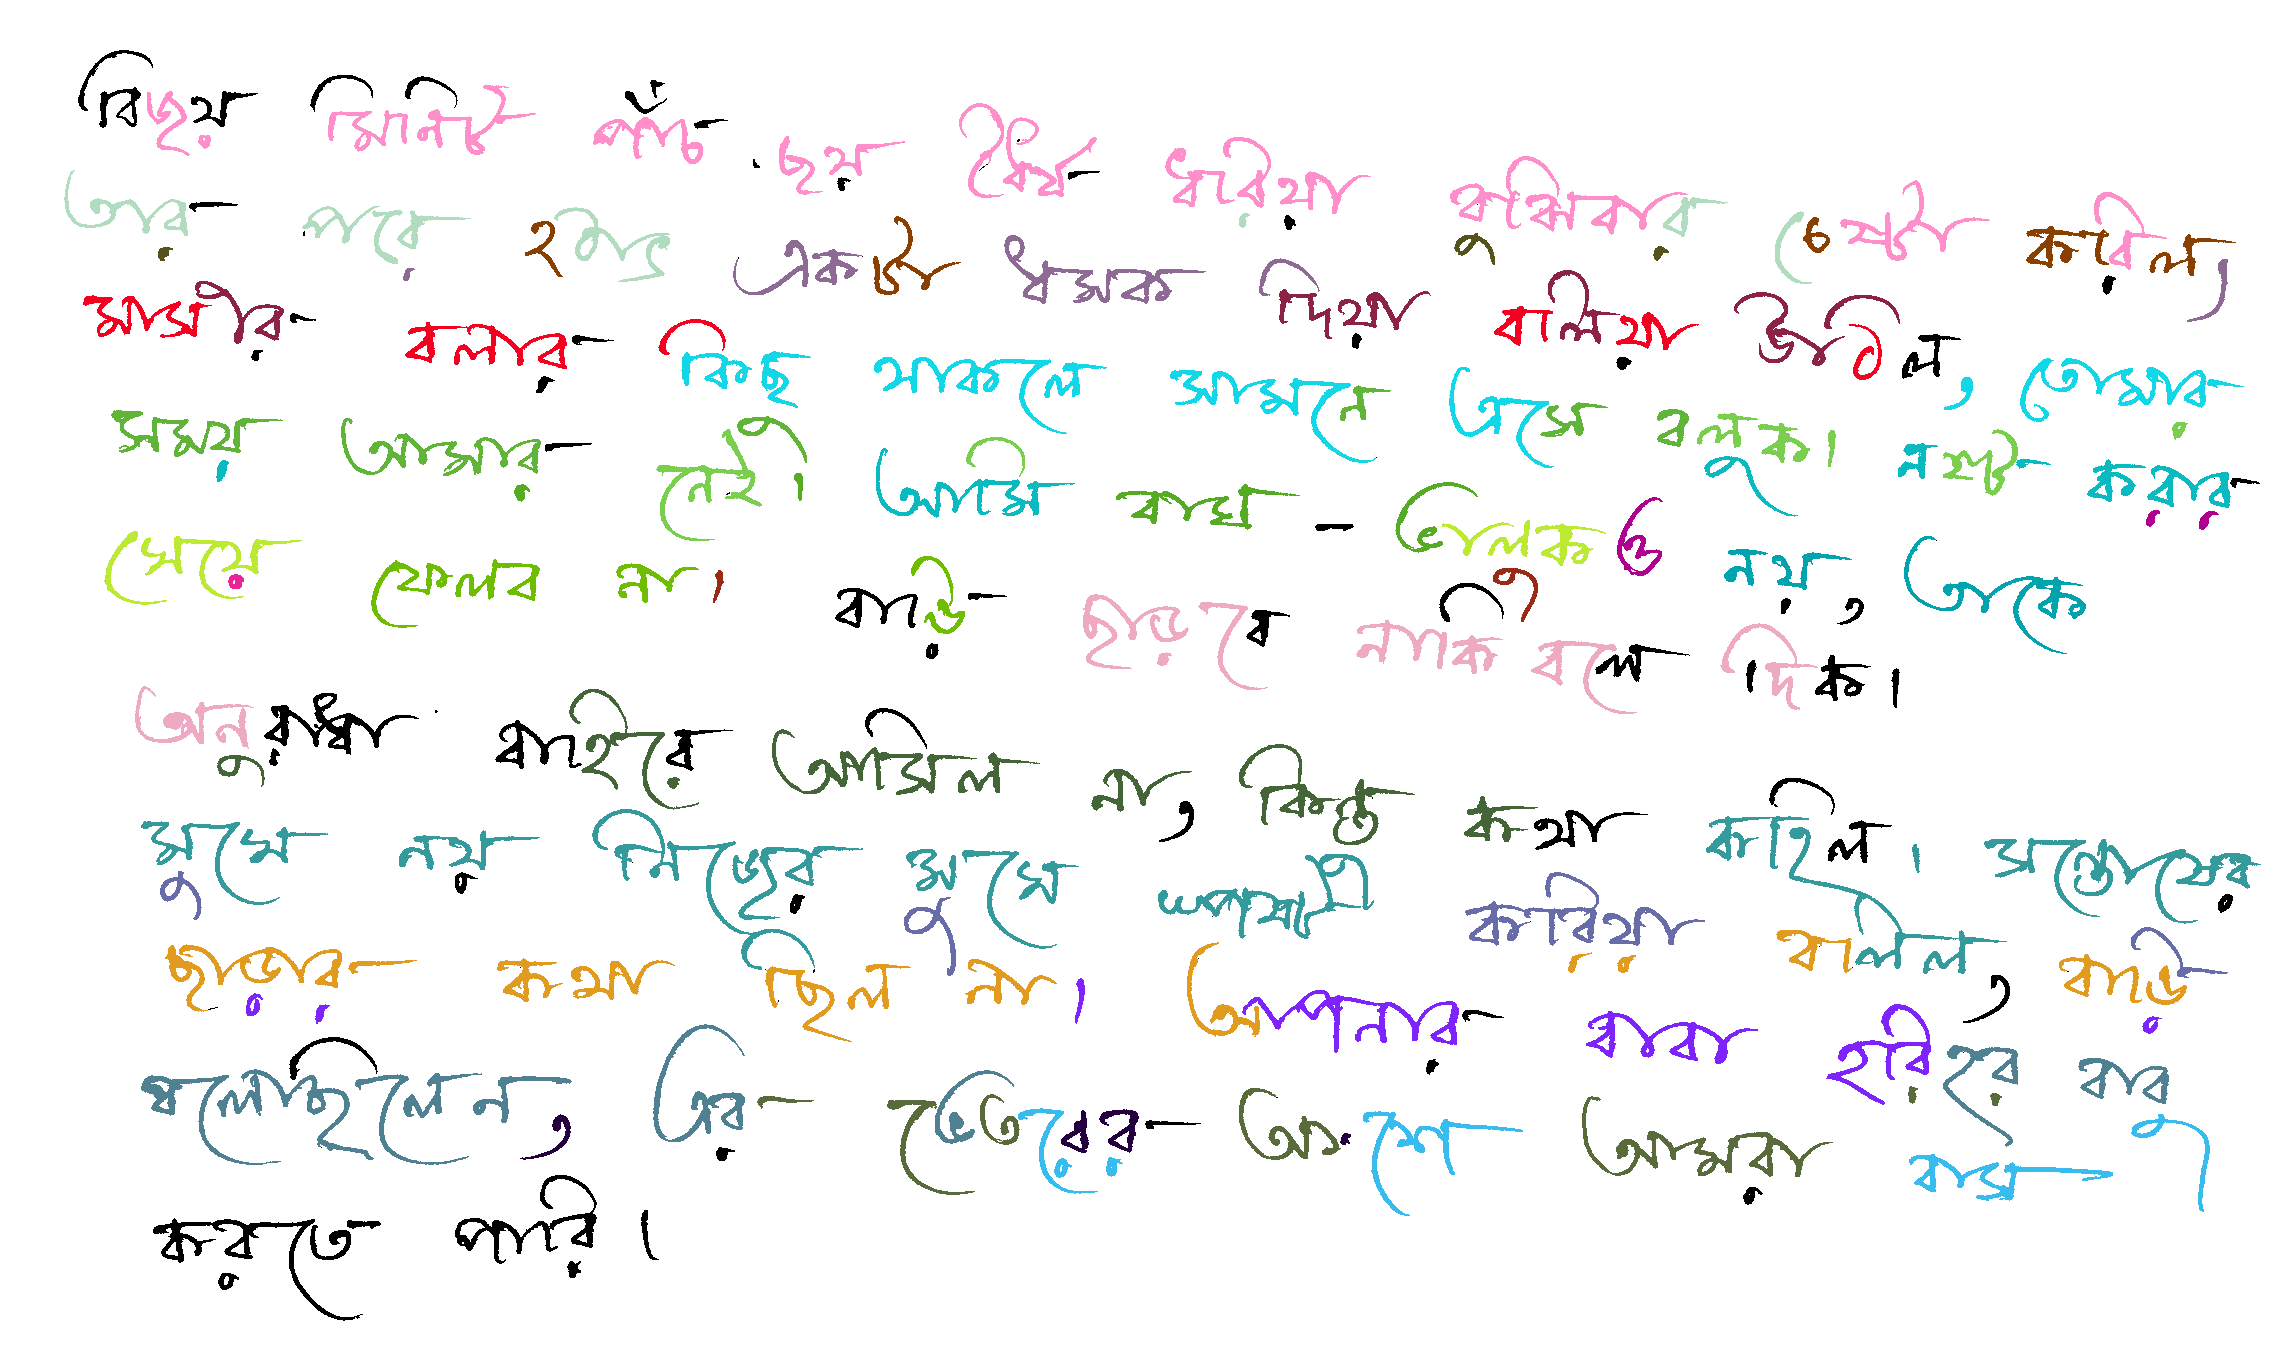 বিজয় মিনিট পাঁচ ছয় ধৈর্য ধরিয়া বুঝিবার চেষ্টা করিল,
তার পরে হঠাৎ একটা ধমক দিয়া বলিয়া উঠিল, তোমার
মাসীর বলার কিছু থাকলে সামনে এসে বলুক। নষ্ট করার
সময় আমার নেই। আমি বাঘ - ভালুকও নয়, তাকে
খেয়ে ফেলব না। বাড়ি ছাড়বে নাকি বলে দিক।
অনুরাধা বাইরে আসিল না, কিন্তু কথা কহিল। সন্তোষের
মুখে নয় নিজের মুখে করিয়া বলিল, বাড়ি
ছাড়ার কথা ছিল না। আপনার বাবা হরিহর বাবু
বলেছিলেন, এর ভেতরের অংশে আমরা বাস
করতে পারি।